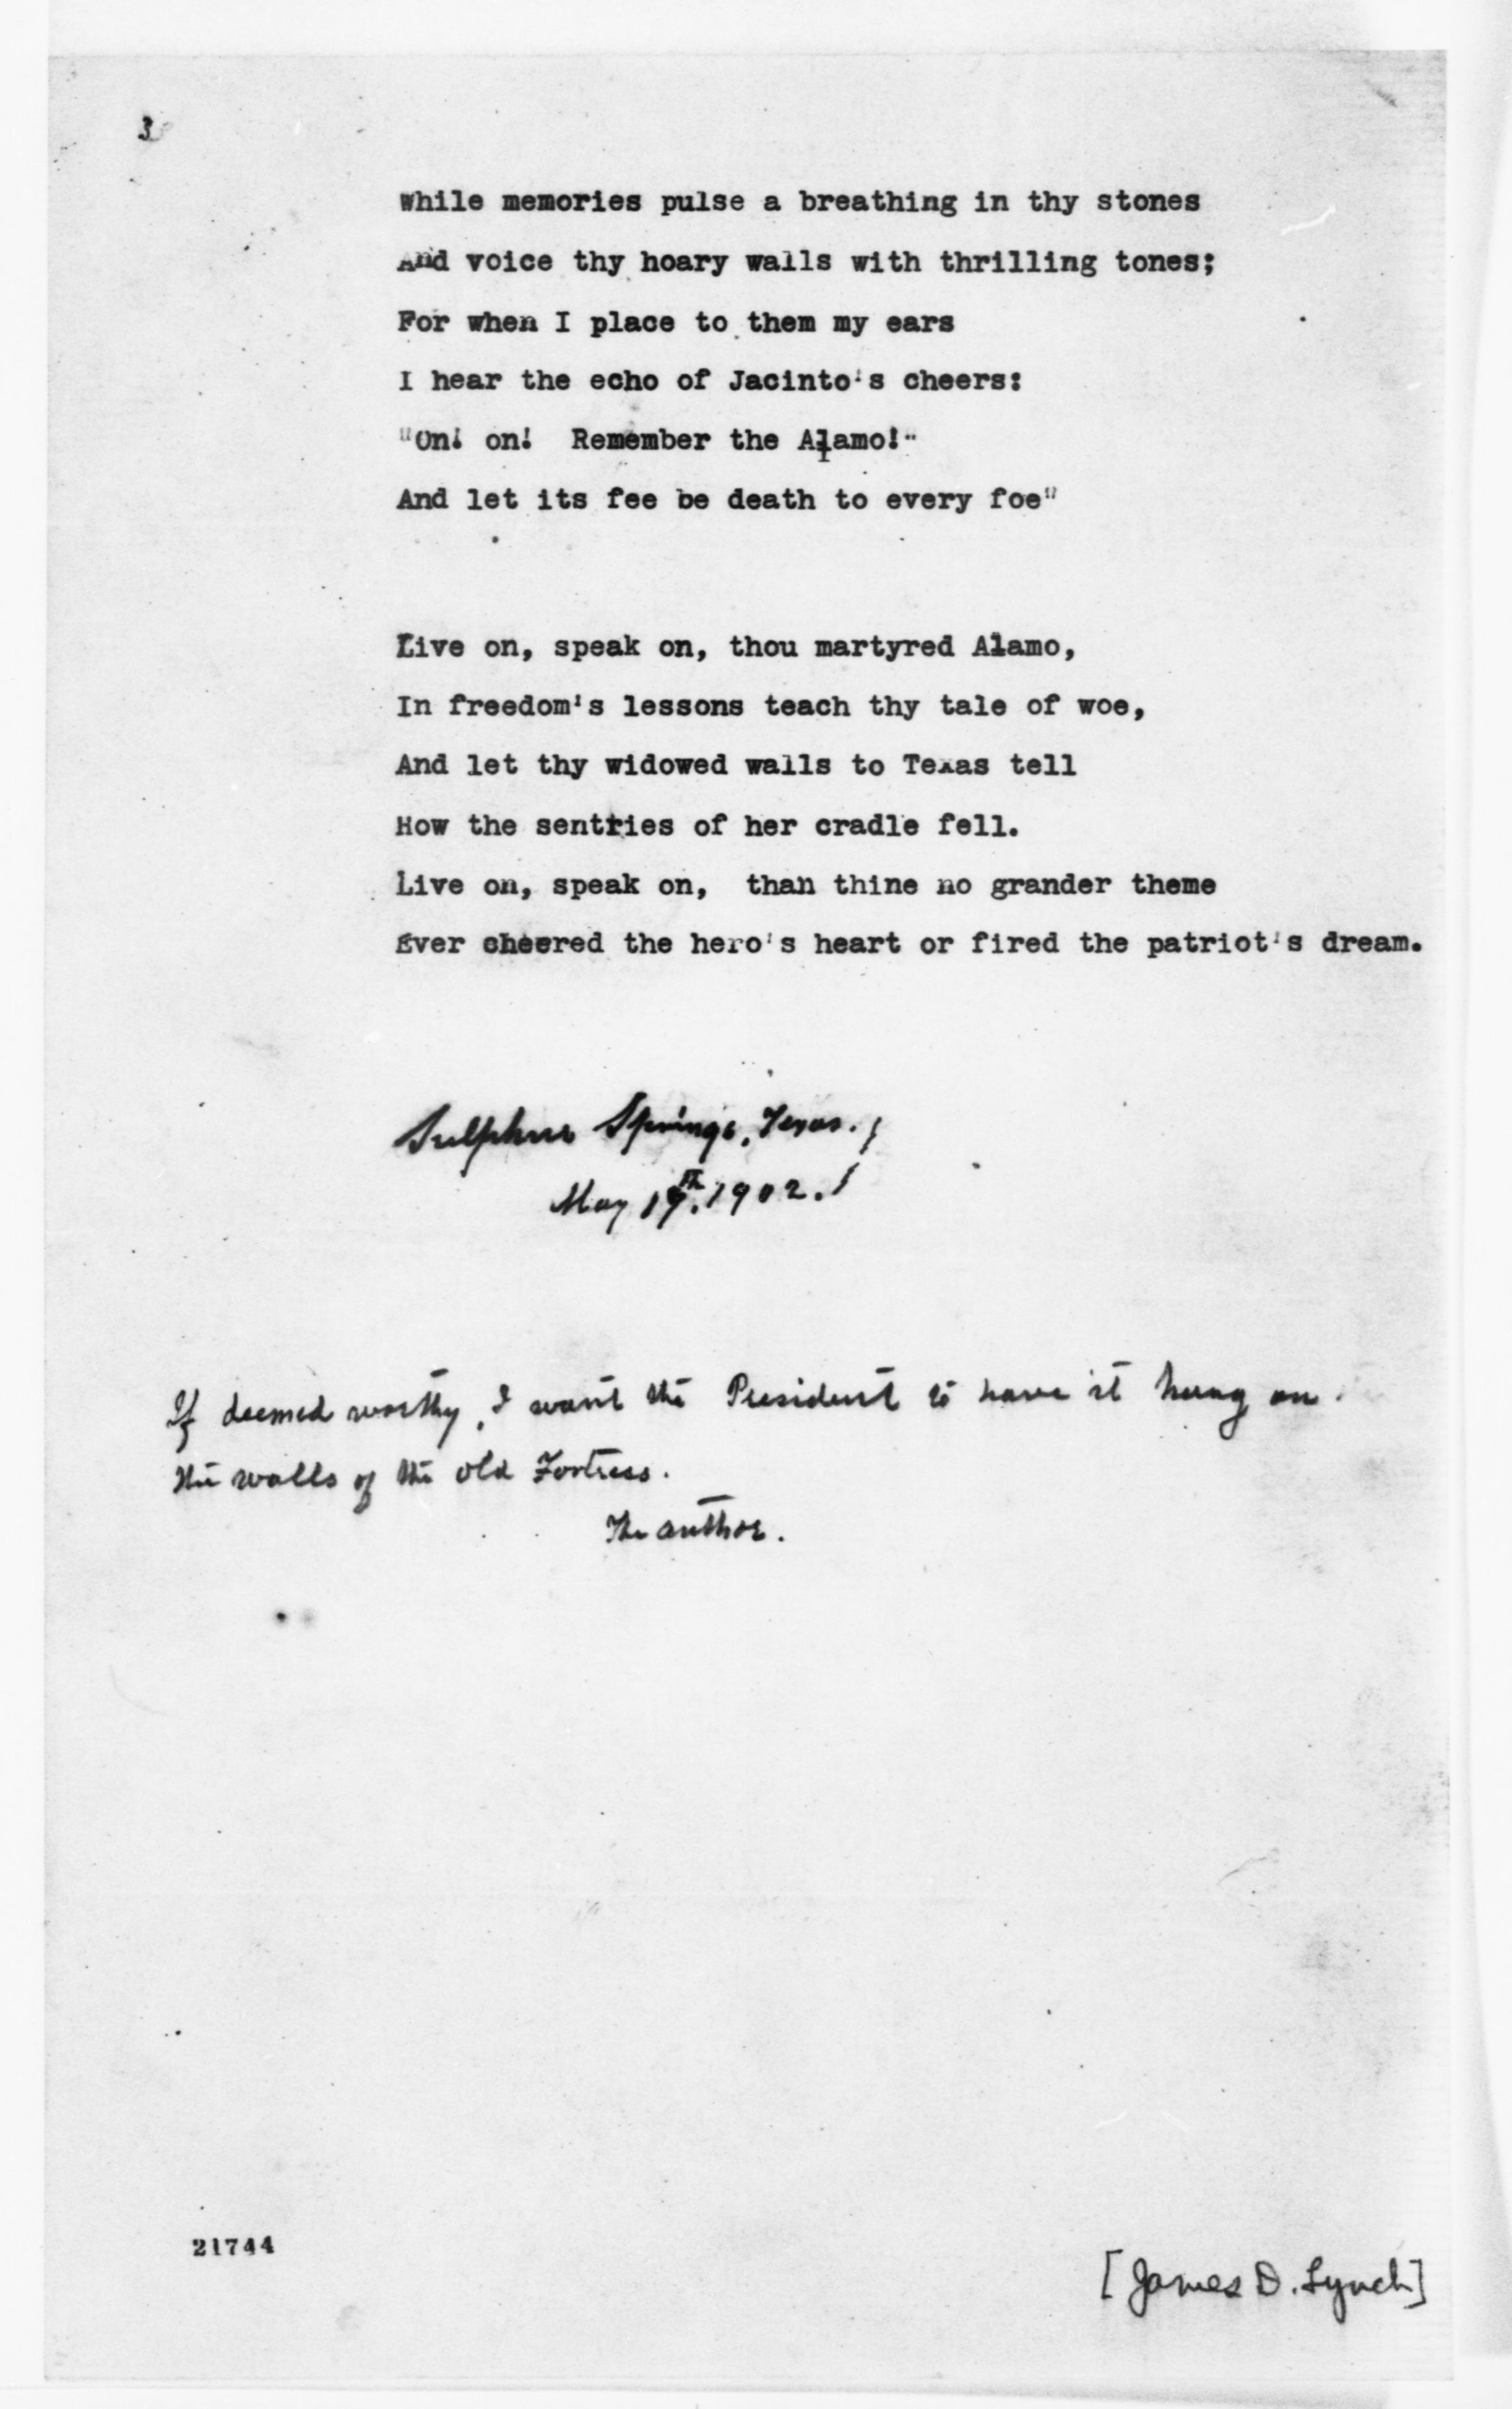 3
While memories pulse a breathing in thy stones
And voice thy hoary walls with thrilling tones;
For when I place to them my ears
I hear the echo of Jacinto's cheers:
"On! on!  Remember the Alamo!"
And let its fee be death to every foe"
Live on, speak on, thou martyred Alamo,
In freedom's lessons teach thy tale of woe,
And let thy widowed walls to Texas tell
How the sentries of her cradle fell.
Live on, speak on,  than thine no grander theme
Ever cheered the hero's heart or fired the patriot's dream.
Sulphur Springs, Texas.
May 19th, 1902.
If deemed worthy, I want the President to have it hung on
the walls of the old Fortress.
The author.
21744
[James D. Lynch]